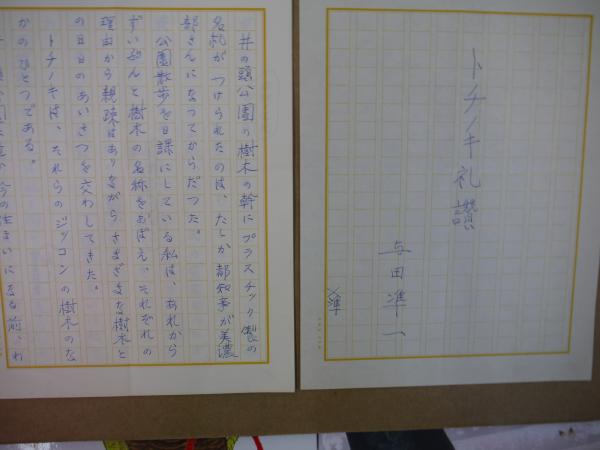 トチノキ礼讃
与田凖一
準
井の頭公園の樹木の幹にプラスチック製の
名札がつけられたのは、たしか都知事が美濃
部さんになってからだった。
公園散歩を日課にしている私は、あれから
ずいぶんと樹木の名称をおぼえ、それぞれの
理由から親疎はありながらさまざまな樹木と
の日日のあいさつを交わしてきた。
トチノキは、それらのジッコンの樹木のな
かのひとつである。
今の住まいになる前、わ